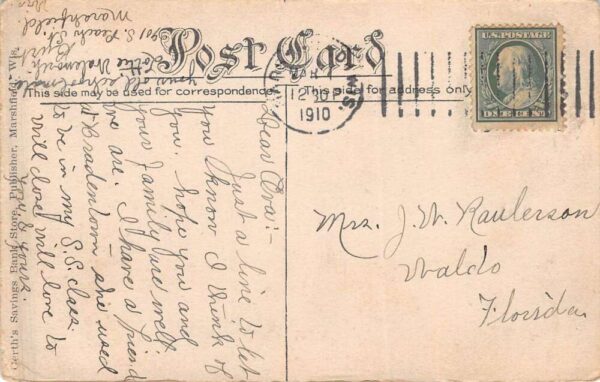 Post Card
This side may be used for correspondence
This side for address only
12 30 P
1910
WIS.
U.S. POSTAGE
ONE CENT
Dear Ora:-
Just a line to let
you know I think of
you. hope you and
your family are well.
we are. I have a friend
at Bradentown she used
to be in my S.S. class.
will close with love to
you & yours.
your old school mate
Lottie
401 S. Peach St
Marshfield
Wis
Mrs. J. W. Raulerson
Waldo
Florida
Gerth's Savings Bank Store, Publisher, Marshfield, Wis.